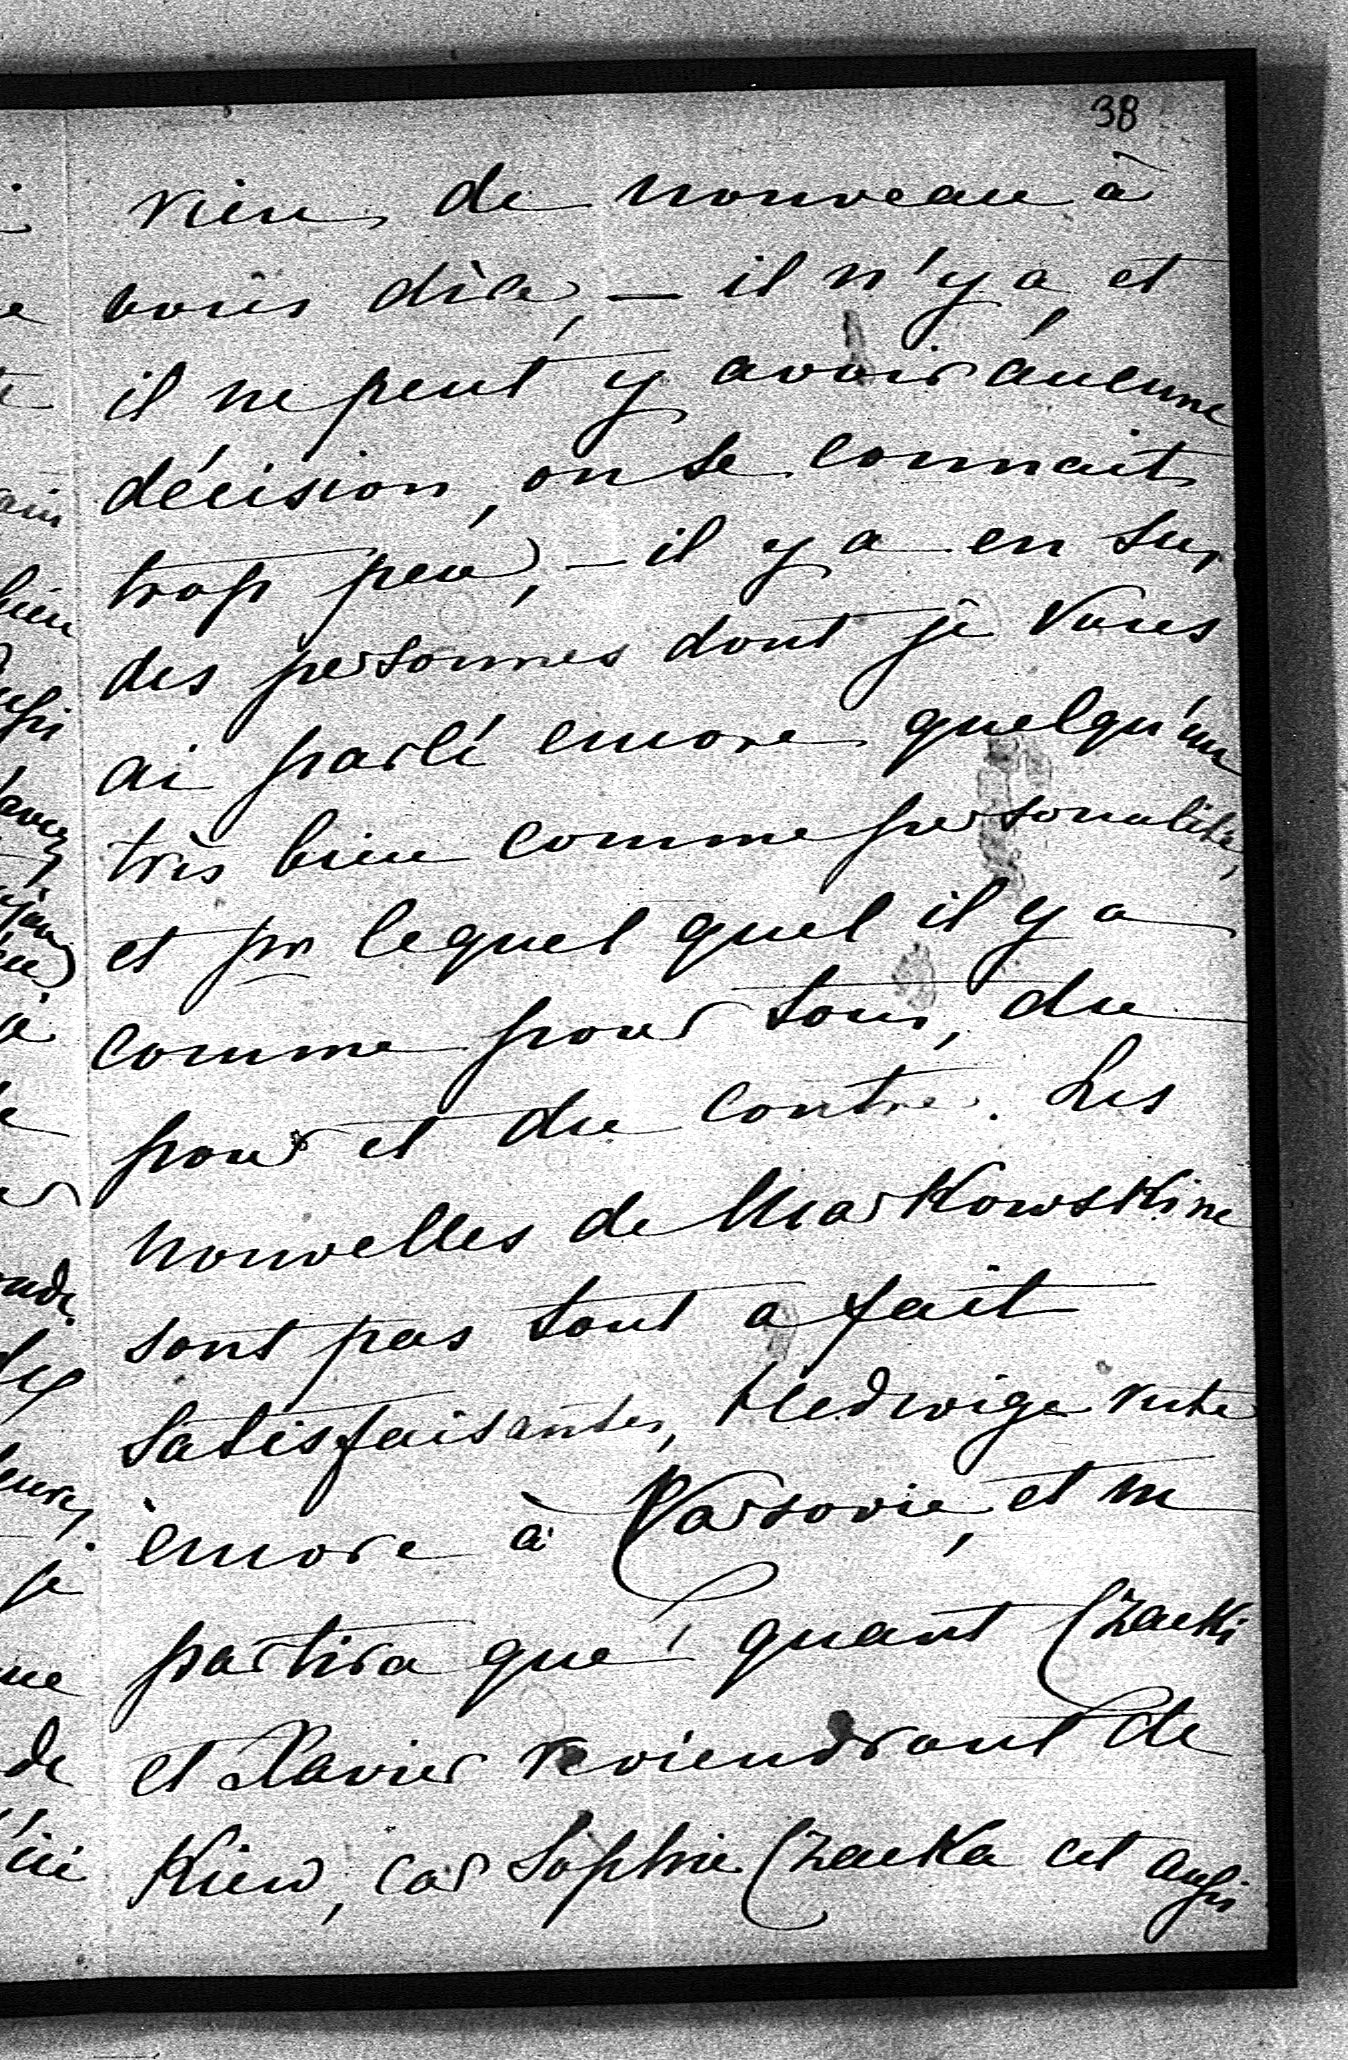 38
rien de nouveau à
vous dire, — il n'y a, et
il ne peut y avoir aucune
décision, on se connait
trop peu, — il y a en sus,
des personnes dont je vous
ai parlé encore quelqu'un
très bien comme personalité,
et pr lequel quel il y a
comme pour tous, du
pour et du contre. Les
nouvelles de Markowski ne
sont pas tout a fait
satisfaisantes, Hedwige reste
encore à Varsovie, et ne
partira que quant Czacki
et Xavier reviendront de
Kiew, car Sophie Czacka est aussi